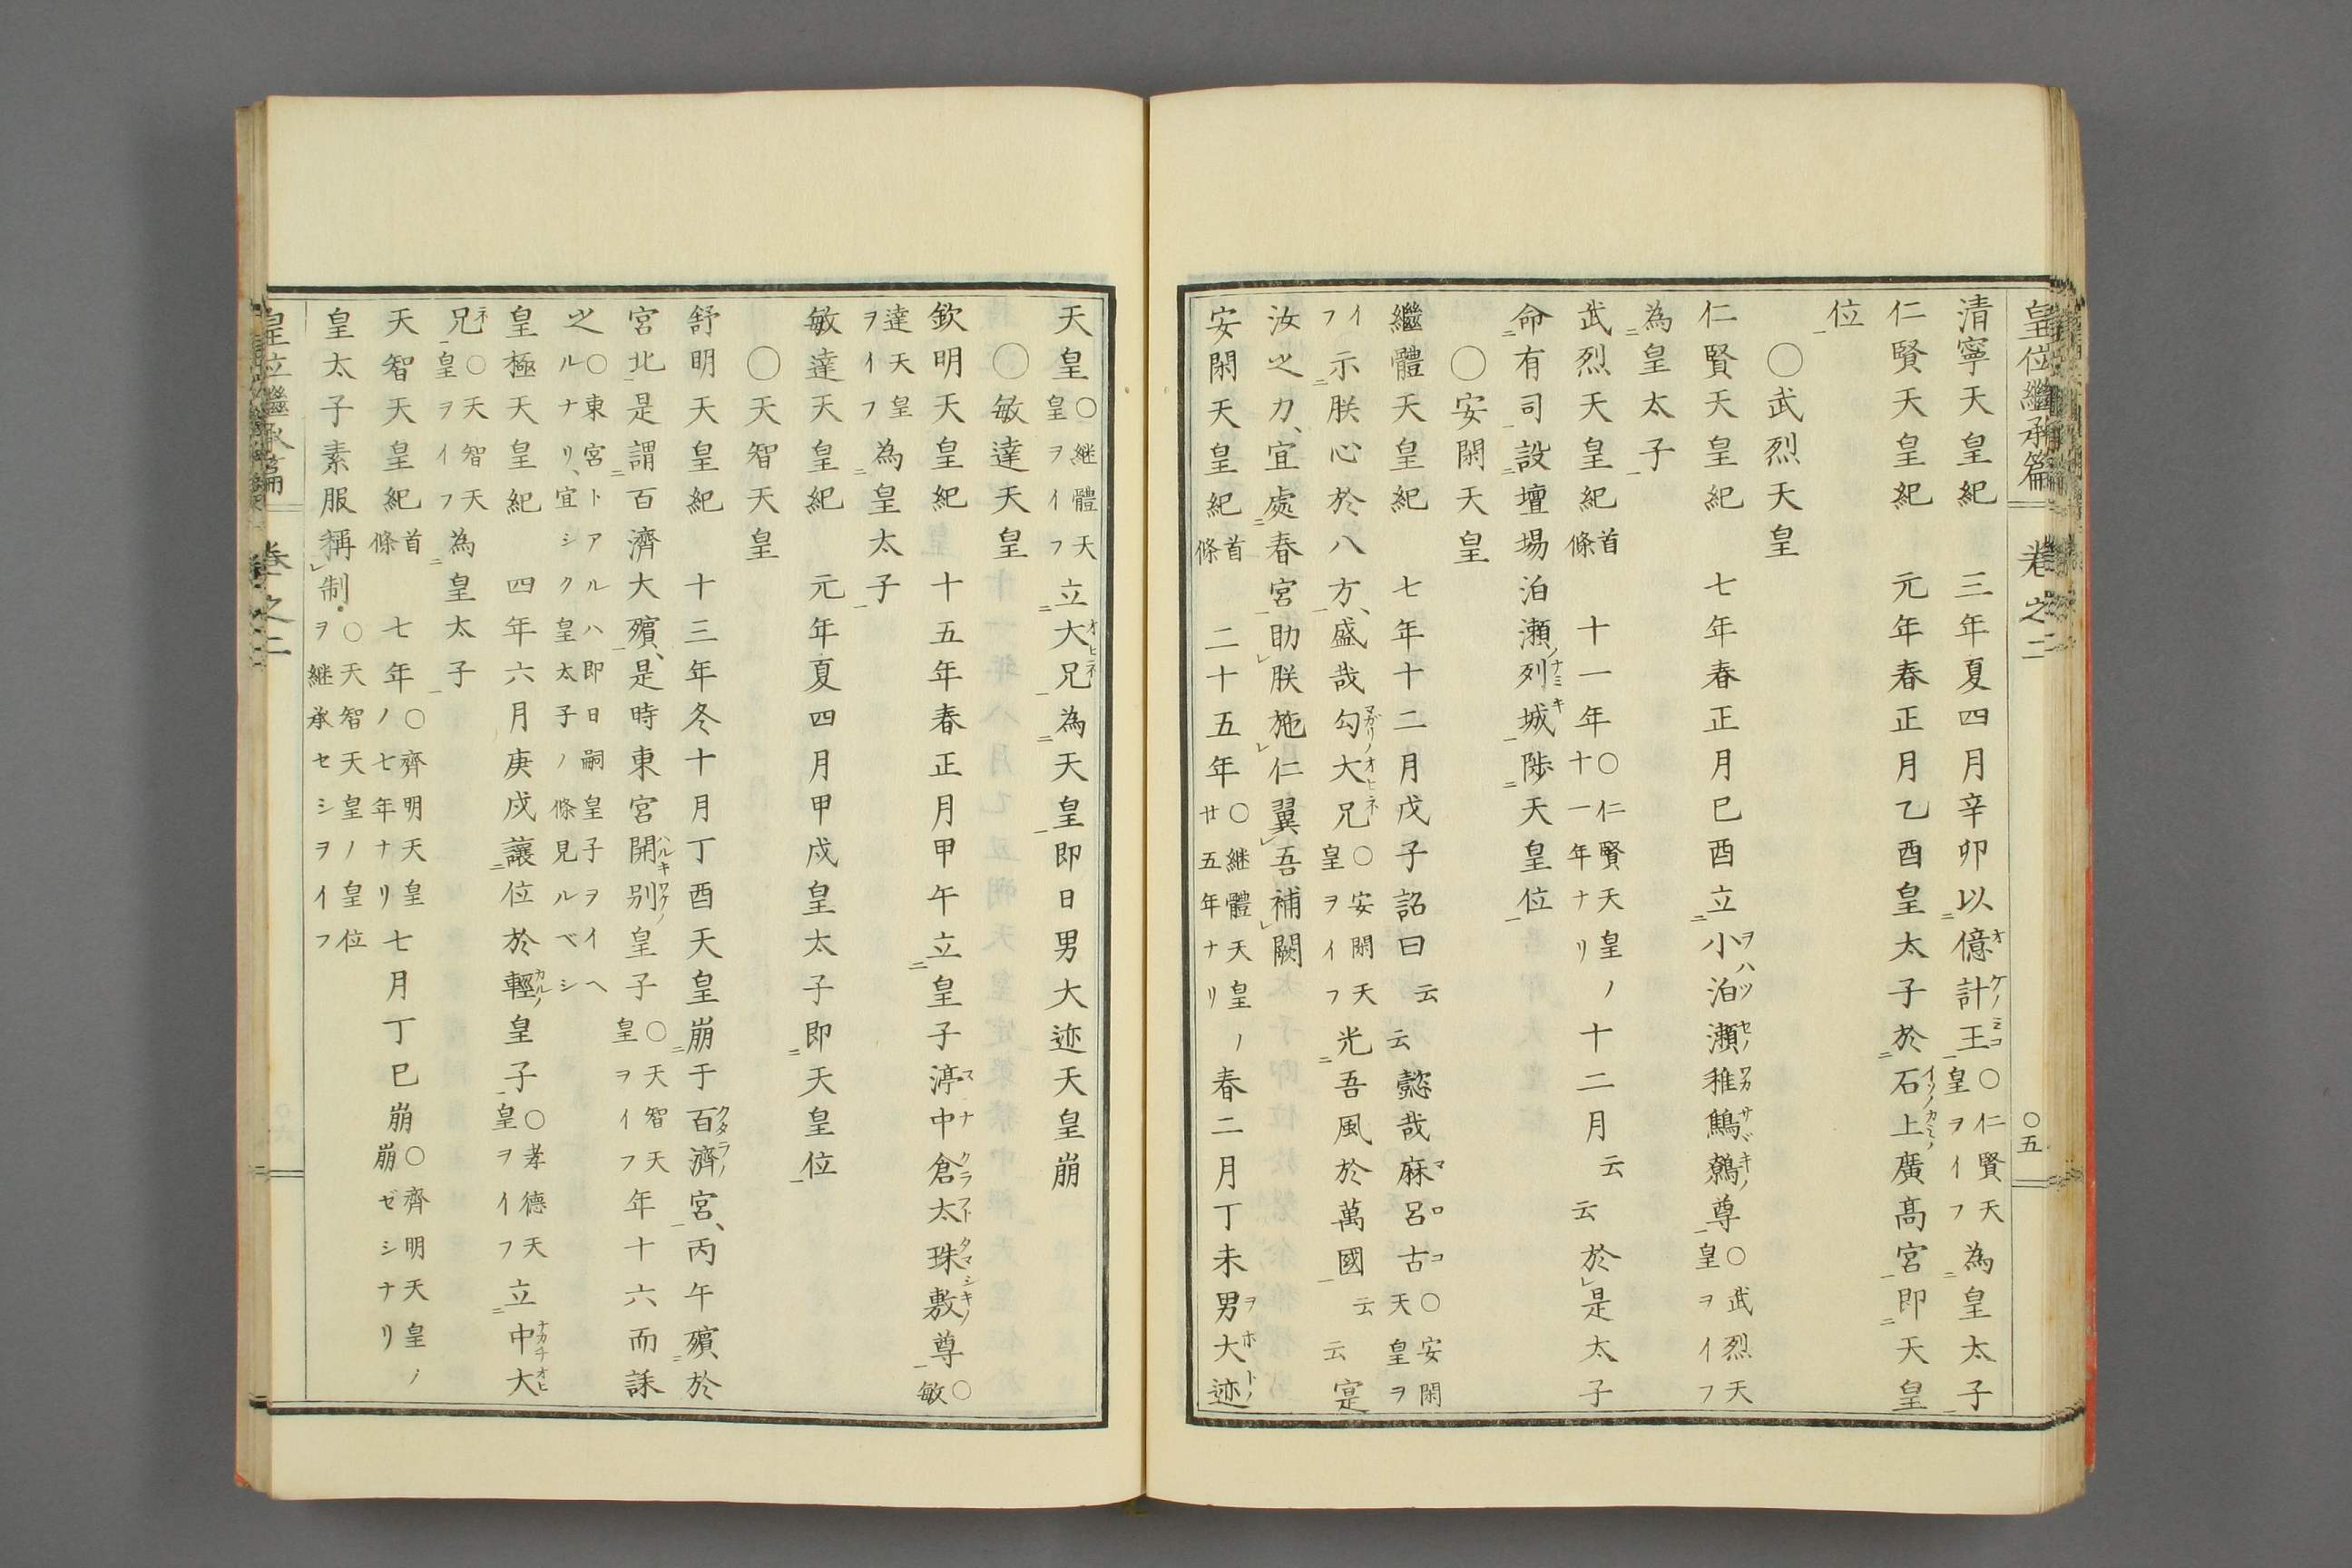 皇位繼承篇 卷之二 〇五
清寧天皇紀 三年夏四月辛卯以億計王〇仁賢天皇ヲイフ為皇太子
仁賢天皇紀 元年春正月乙酉皇太子於石上廣髙宮即天皇
位
〇武烈天皇
仁賢天皇紀 七年春正月己酉立小泊瀬稚鷦鷯尊〇武烈天皇ヲイフ
為皇太子
武烈天皇紀首條 十一年〇仁賢天皇ノ十一年ナリ十二月云云於是太子
命有司設壇場泊瀬列城陟天皇位
〇安閑天皇
繼體天皇紀 七年十二月戊子詔曰云云懿哉麻呂古〇安閑天皇ヲ
イフ示朕心於八方、盛哉勾大兄〇安閑天皇ヲイフ光吾風於萬國云云寔
汝之力、宜處春宮助朕施仁翼吾補闕
安閑天皇紀首條 二十五年〇継體天皇ノ廿五年ナリ春二月丁未男大迹
天皇〇継體天皇ヲイフ立大兄為天皇即日男大迹天皇崩
〇敏達天皇
欽明天皇紀 十五年春正月甲午立皇子渟中倉太珠敷尊〇敏
達天皇ヲイフ為皇太子
敏達天皇紀 元年夏四月甲戌皇太子即天皇位
〇天智天皇
舒明天皇紀 十三年冬十月丁酉天皇崩于百濟宮、丙午殯於
宮北是謂百濟大殯、是時東宮開別皇子〇天智天皇ヲイフ年十六而誄
之〇東宮トアルハ即日嗣皇子ヲイヘルナリ、宜シク皇太子ノ條見ルベシ
皇極天皇紀 四年六月庚戌讓位於輕皇子〇孝德天皇ヲイフ立中大
兄〇天智天皇ヲイフ為皇太子
天智天皇紀首條 七年〇齊明天皇ノ七年ナリ七月丁巳崩〇齊明天皇ノ崩ゼシナリ
皇太子素服稱制〇天智天皇ノ皇位ヲ継承セシヲイフ
皇位繼承篇 卷之二